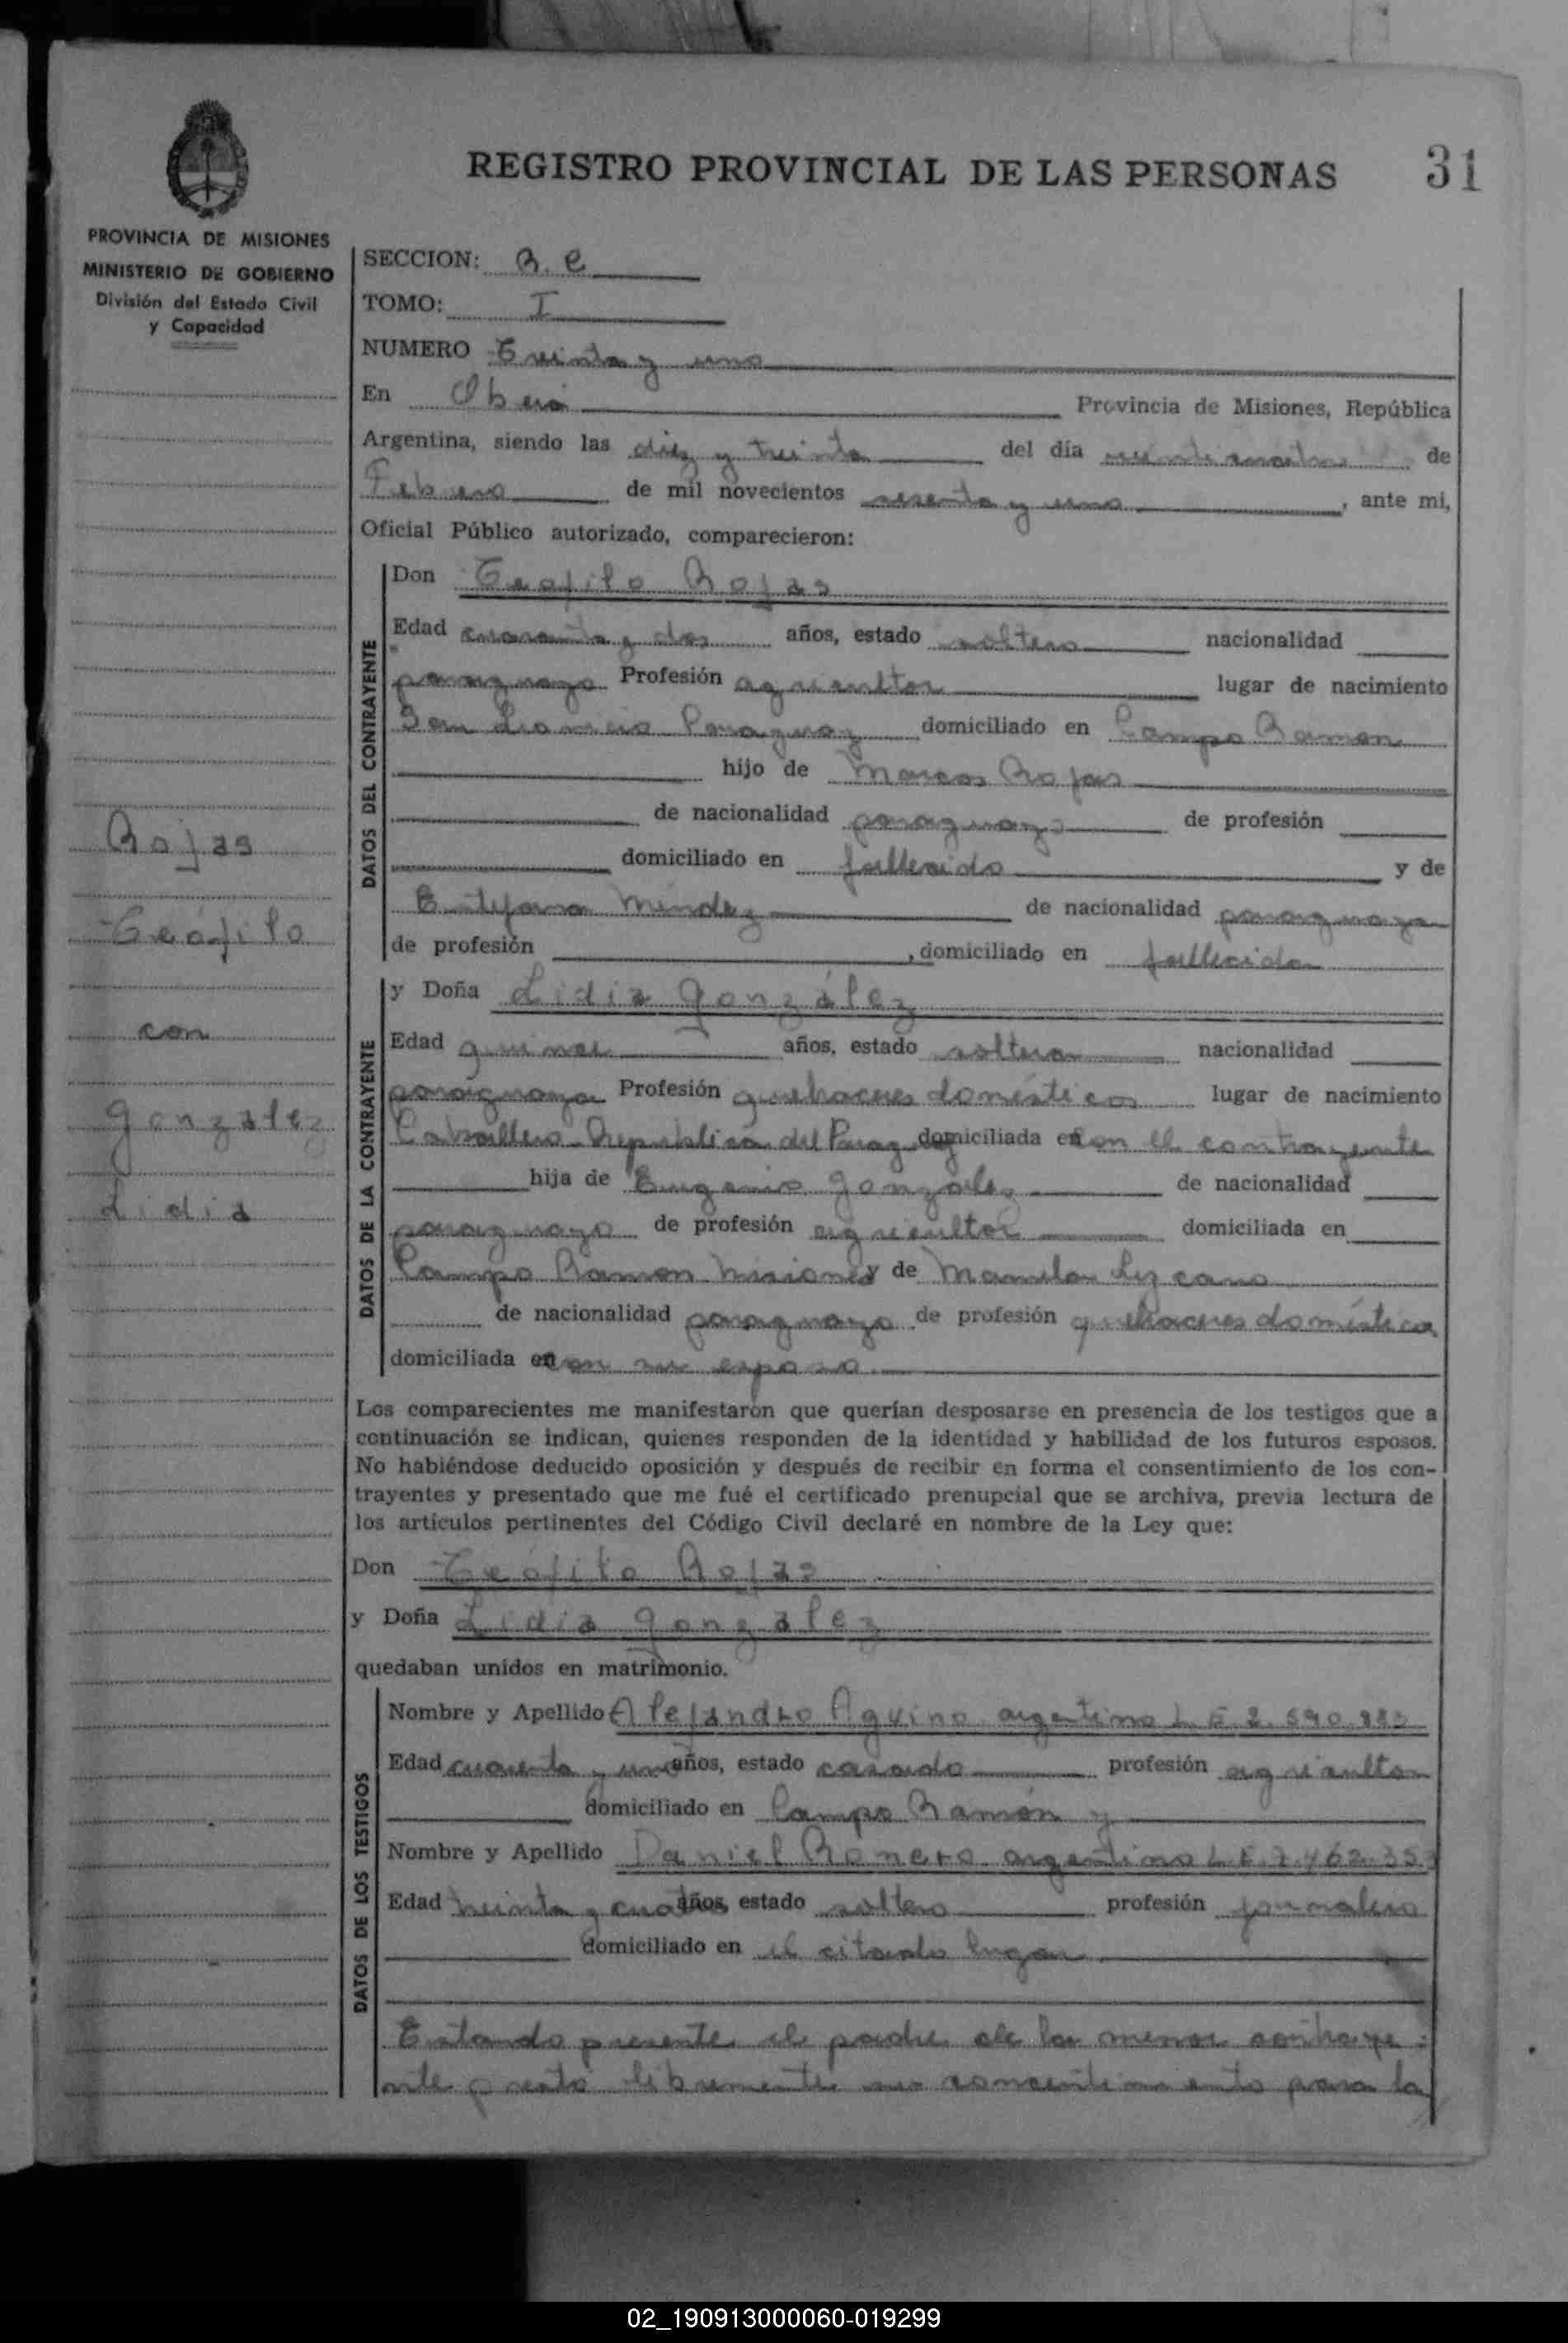 REGISTRO PROVINCIAL DE LAS PERSONAS 31
PROVINCIA DE MISIONES
MINISTERIO DE GOBIERNO
División del Estado Civil
y Capacidad
SECCION: R. C
TOMO: I
NUMERO Treinta y uno
En Oberá Provincia de Misiones, República
Argentina, siendo las diez y treinta del día veinticuatro de
Febrero de mil novecientos sesenta y uno, ante mi,
Oficial Público autorizado, comparecieron:
DATOS DEL CONTRAYENTE
Don Teofilo Rojas
Edad cuarenta y dos años, estado soltero nacionalidad
paraguayo Profesión agricultor lugar de nacimiento
San Paraguay domiciliado en Campo Ramon
hijo de Marcos Rojas
de nacionalidad paraguayo de profesión
domiciliado en fallecido y de
Mendez de nacionalidad paraguaya
de profesión , domiciliado en fallecida
Rojas
Teófilo
con
González
Lidia
DATOS DE LA CONTRAYENTE
y Doña Lidia González
Edad quince años, estado soltera nacionalidad
paraguaya Profesión quehaceres domésticos lugar de nacimiento
Caballero República del Paraguay domiciliada en con el contrayente
hija de Eugenio Gonzalez de nacionalidad
paraguayo de profesión agricultor domiciliada en
Campo Ramon Misiones y de Manuela Lezcano
de nacionalidad paraguaya de profesión quehaceres doméstica
domiciliada en con su esposo
Los comparecientes me manifestaron que querían desposarse en presencia de los testigos que a
continuación se indican, quienes responden de la identidad y habilidad de los futuros esposos.
No habiéndose deducido oposición y después de recibir en forma el consentimiento de los con-
trayentes y presentado que me fué el certificado prenupcial que se archiva, previa lectura de
los artículos pertinentes del Código Civil declaré en nombre de la Ley que:
Don Teófilo Rojas
y Doña Lidia González
quedaban unidos en matrimonio.
DATOS DE LOS TESTIGOS
Nombre y Apellido Alejandro Aquino argentino L E
Edad cuarenta y uno años, estado casado profesión agricultor
domiciliado en Campo Ramón y
Nombre y Apellido Daniel Romero argentino L E 7.462.353
Edad treinta y cuatro años, estado soltero profesión jornalero
domiciliado en el citado lugar
Estando presente el padre de la menor contraye-
nte prestó libremente su consentimiento para la
02_190913000060-019299